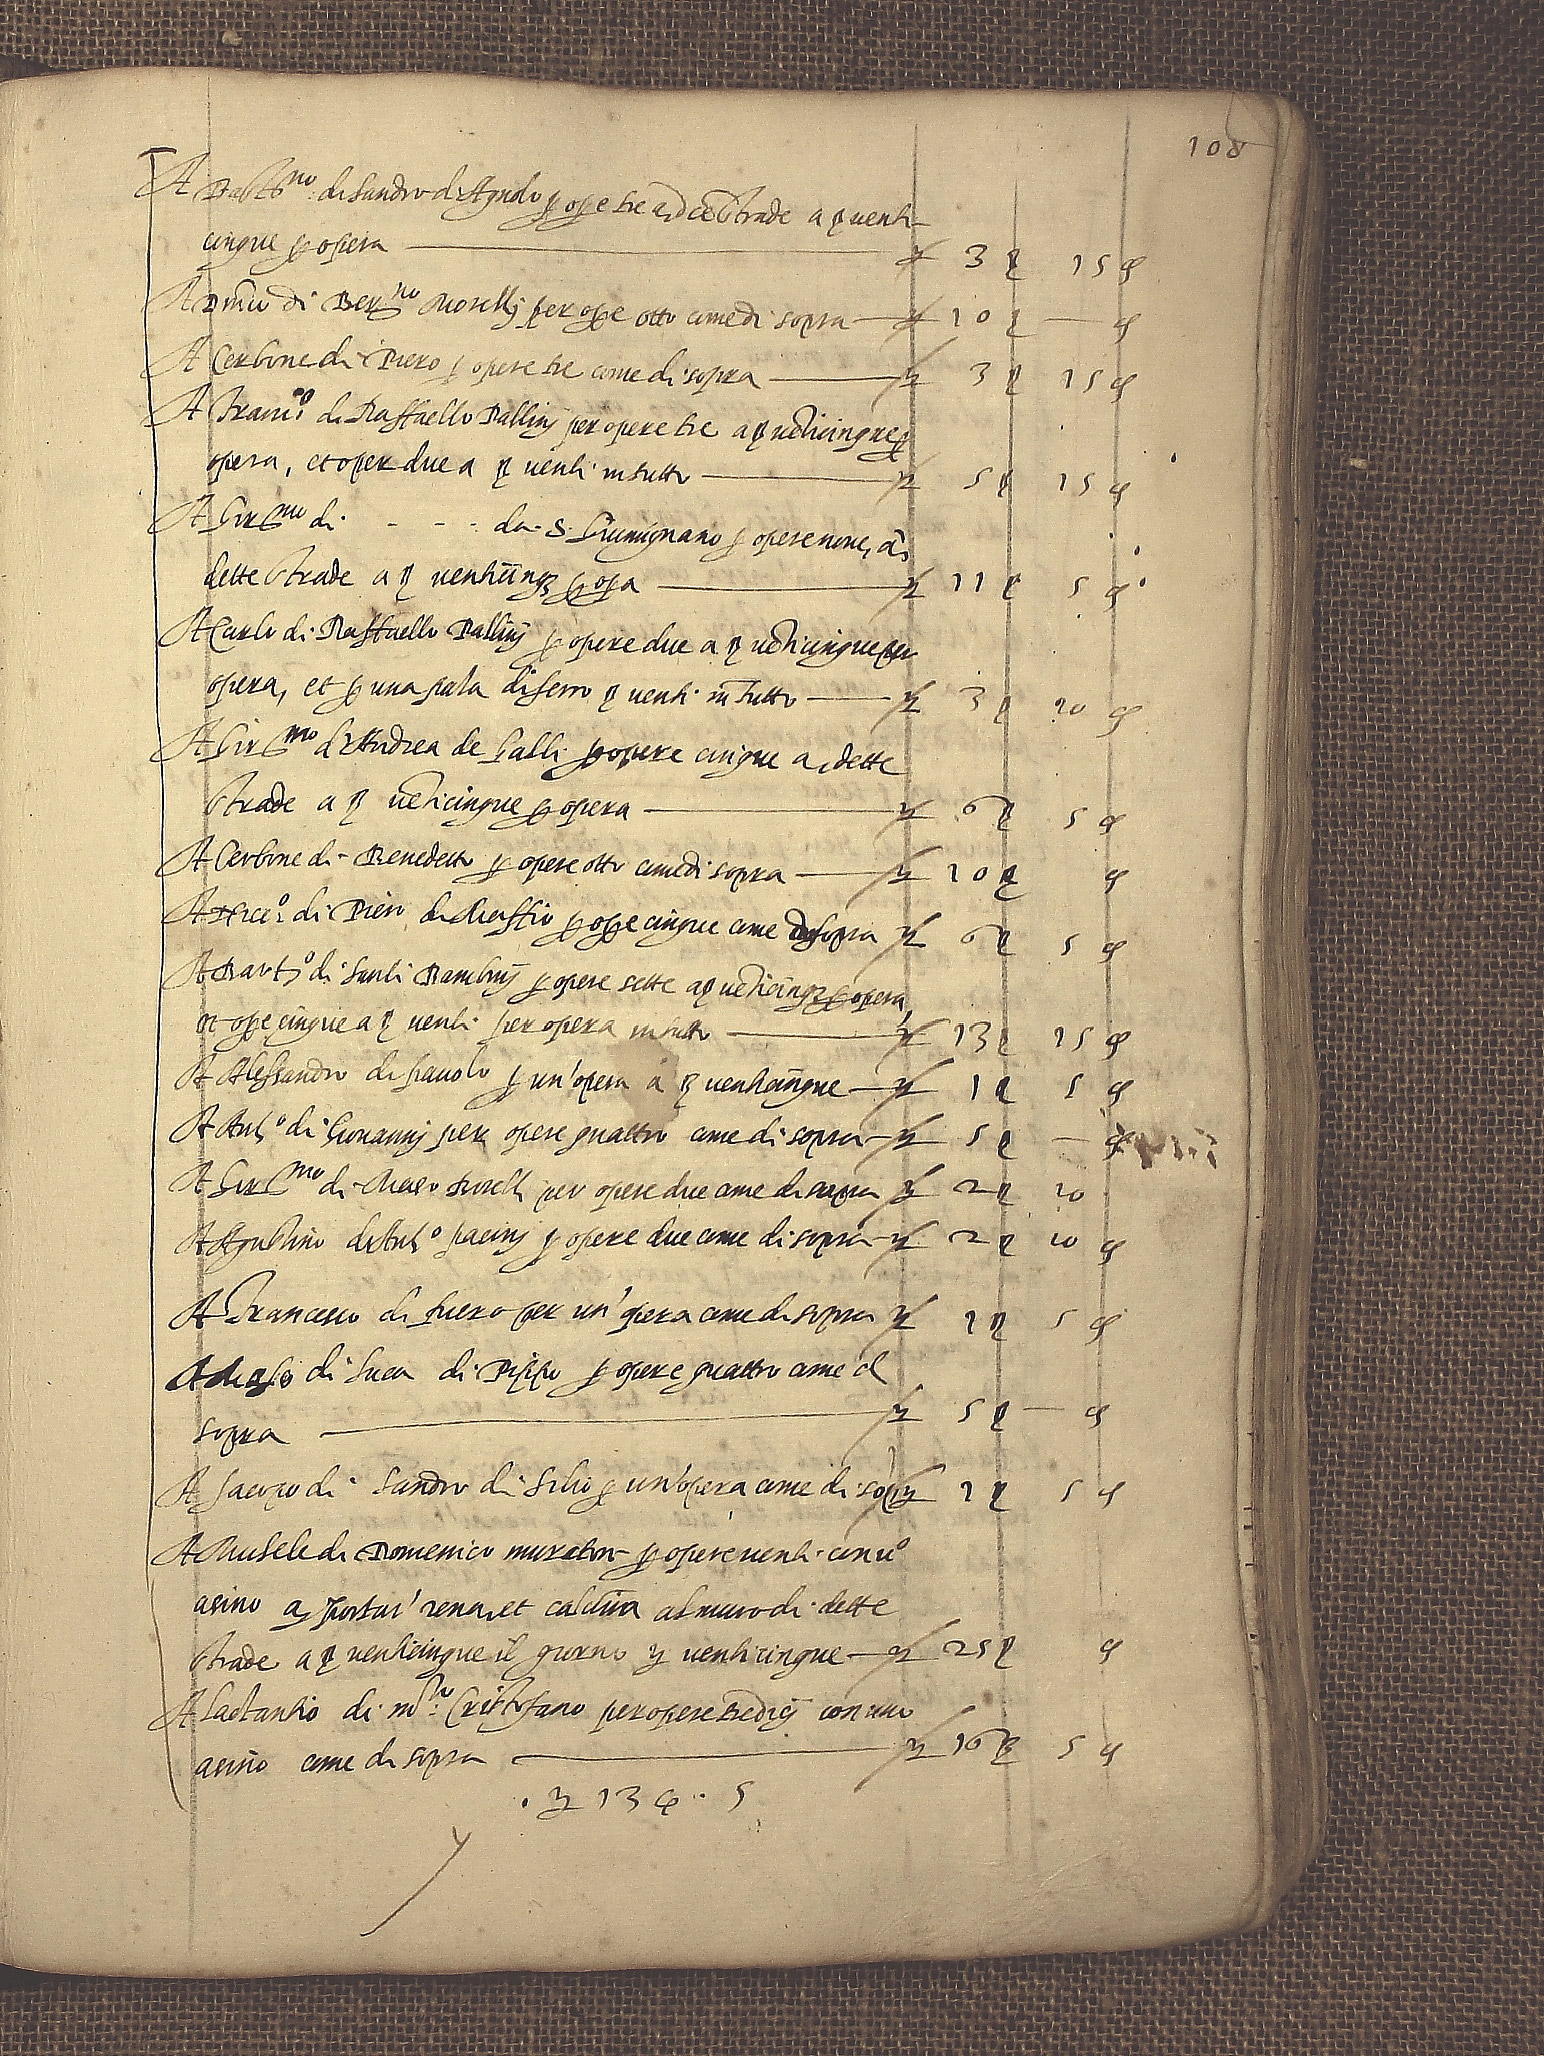 108
A Bartmo di Sandro d'Agnolo p ope tre a dce strade a β venti
cinque p opera — ℔ 3 β 15 ₰
A Dmco di Berno Morellj per ope otto come di sopra — ℔ 10 β — ₰
A Cerbone di Piero p opere tre come di sopra — ℔ 3 β 15 ₰
A Franco di Raffaello Pallinj per opere tre a β vēticinque p
opera, et oper due a β venti in tutto — ℔ 5 β 15 ₰
A Girmo di - - - da S. Giumignano p opere nove, à
dette strade a β venticinq p opa — ℔ 11 β 5 ₰
A Carlo di Raffaello Pallinj p opere due a β vēticinque per
opera, et p una pala di ferro β venti in tutto — ℔ 3 β 10 ₰
A Girmo d'Andrea de Galli p opere cinque a dette
strade a β vēticinque p opera — ℔ 6 β 5 ₰
A Cerbone di Benedetto p opere otto come di sopra — ℔ 10 β ₰
A di Piero di Maffio p ope cinque come di sopra ℔ 6 β 5 ₰
A Barto di Santi Bambinj p opere sette a β vēticinq p opera,
et ope cinque a β venti per opera in tutto — ℔ 13 β 15 ₰
A Alessandro di pauolo p un'opera à β venticinque — ℔ 1 β 5 ₰
A Anto di Giovannj per opere quattro come di sopra — ℔ 5 β — ₰
A Girmo di Meo per opere due come di sopra ℔ 2 β 10
A Agustino d'Anto pacinj p opere due come di sopra — ℔ 2 β 10 ₰
A Francesco di piero per un'opera come di sopra ℔ 1 β 5 ₰
A Maso di Luca di Pippo p opere quattro come di
sopra — ℔ 5 β — ₰
A Jacopo di Sandro di p un'opera come di sopa ℔ 1 β 5 ₰
A di Domenico muratore p opere venti con uo
asino a portar' rena, et calcina al muro di dette
strade a β venticinque il giorno ℔ venticinque — ℔ 25 β ₰
A Lactantio di mro Cristofano per opere tredicj con uno
asino come di sopra — ℔ 16 β 5 ₰
. ℔ 136 . 5